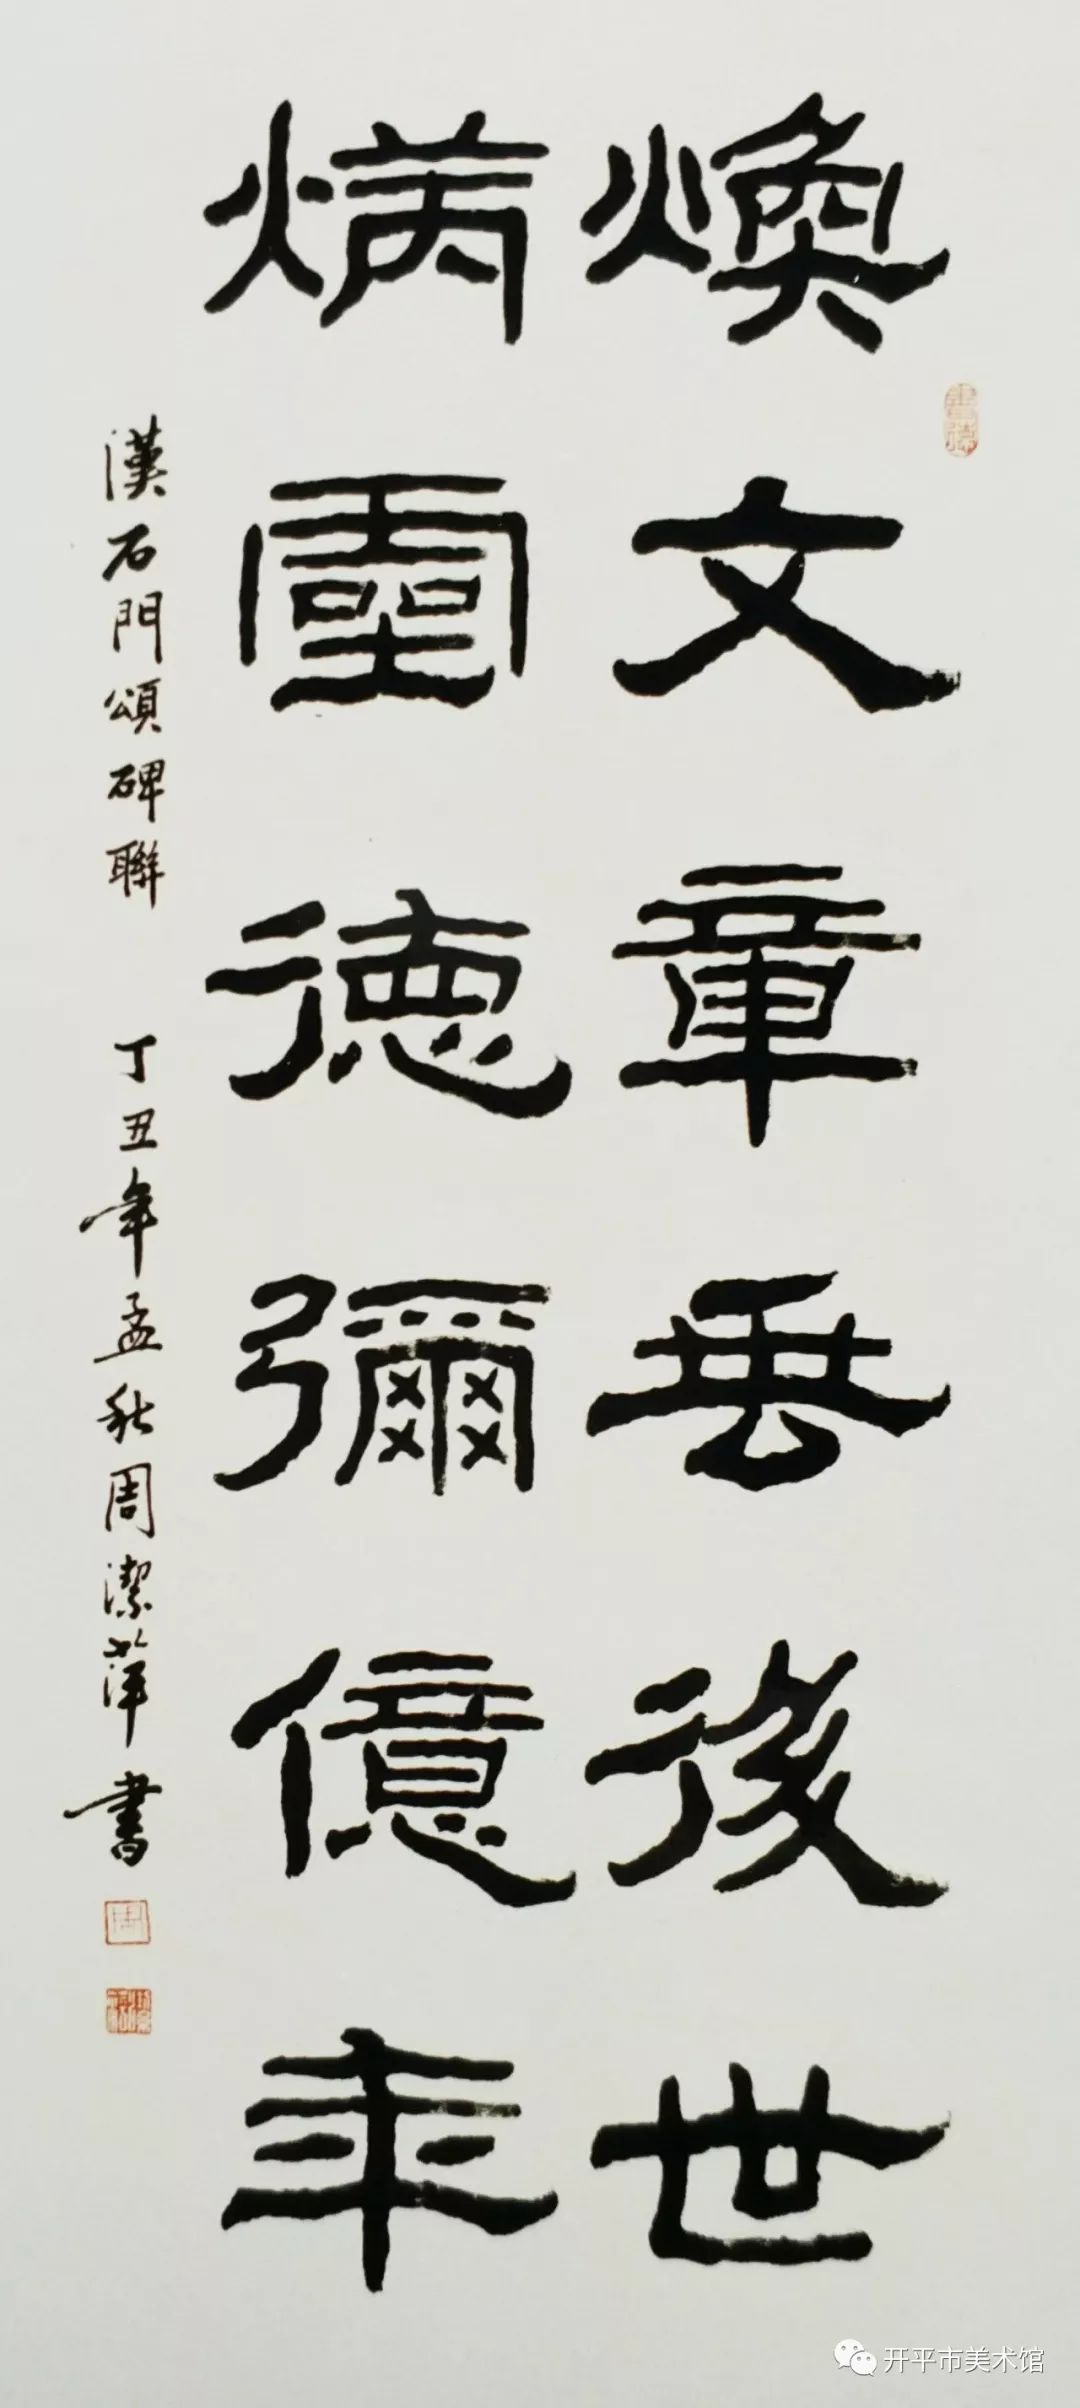 煥文章垂後世
炳靈德彌億年
漢石門頌碑聯 丁丑年孟秋周潔萍書
周
开平市美术馆